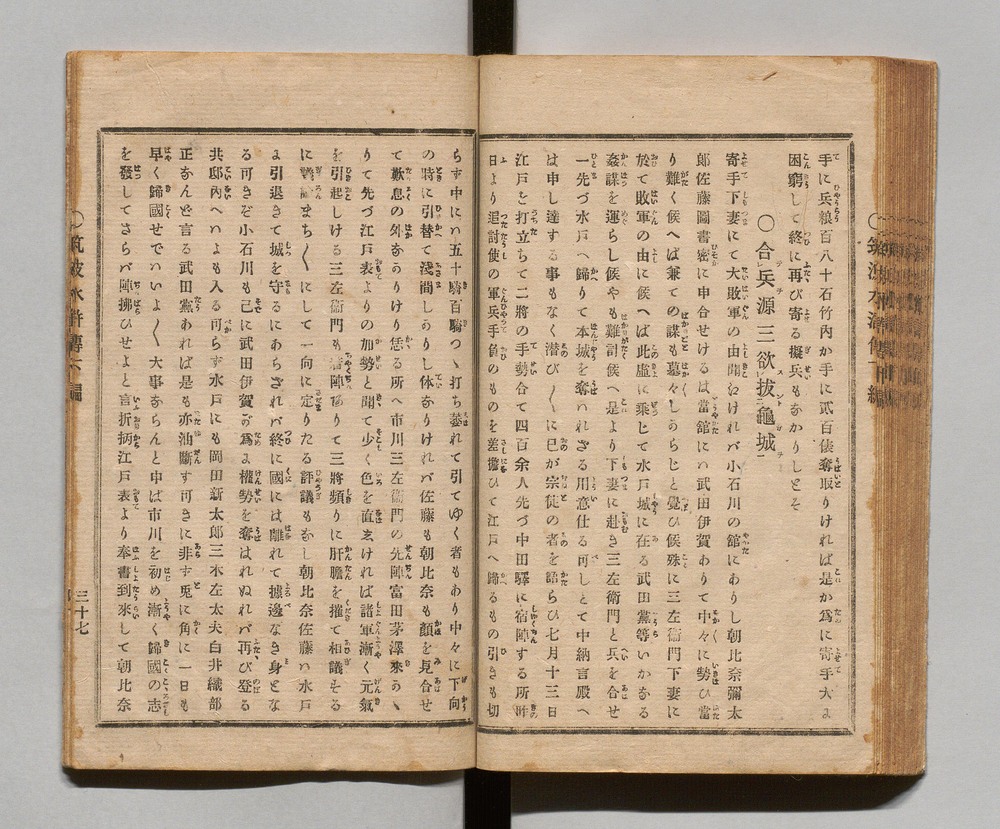 手に兵粮百八十石竹內か手に武百俵奪取りければ是か爲に寄手大ょ
困窮して終に再び寄る擬兵もなかりしとそ
〇合兵源三欲拔龜城
寄手下妻にて大敗軍の由聞ねければ小石川の館にありし朝比奈彌太
郞佐藤圖書密に申合せけるは當館にハ武田伊賀ありて中々に勢ひ當
り難く候へば兼ての謀も墓々しからじと覺ひ候殊に三左衞門下妻に
於て敗軍の由に候へば此虛に乘じて水戸城に在る武田黨等いかなる
姦謀を運らし候やも難計候へ是より下妻に赴き三左衞門と兵を合せ
一先づ水戸へ歸りて本城を奪れざる用意仕る可しとて中納言殿へ
は申し達する事もなく潜び〱に已が宗徒の者を語らひ七月十三日
江戸を打立ちて二將の手勢合て四百余人先づ中田驛に宿陣する所昨
日より追討使の軍兵手負のものを差擔ひて江戸へ歸るもの引きも切
らす中にハ五十騎百騎つゝ打ち萎れて引てゆく者もあり中々に下向
の時に引替て淺間しかりし体なりければ佐藤も朝比奈も顏を見合せ
て歎息の外なかりけり恁る所へ市川三左衞門の先陣富田茅澤來り
りて先づ江戸表よりの加勢と聞て少く色を直ゑければ諸軍漸く元氣
を引起しける三左衞門も着陣ありて三將頻りに肝膽を摧て和議そる
に議論まち〱にして一向に定りたる評議もなし朝比奈佐藤ハ水戸
ょ引退きて城を守るにあらざれバ終に國には離れて據邊なき身とな
る可きぞ小石川も己に武田伊賀が爲ょ權勢を奪はれぬれバ再び登る
共邸內へいょも入る可らす水戸にも岡田新太郞三木左太夫白井織部
正なんど言る武田黨あれば是も亦油斷す可きに非す兎に角に一日も
早く歸國せでいいょ〱大事ならんと申ば市川を初め漸く歸國の志
を發してさらバ陣拂ひせよと言折柄江戸表より奉書到來して朝比奈
〇筑波水滸傳六編
三十七